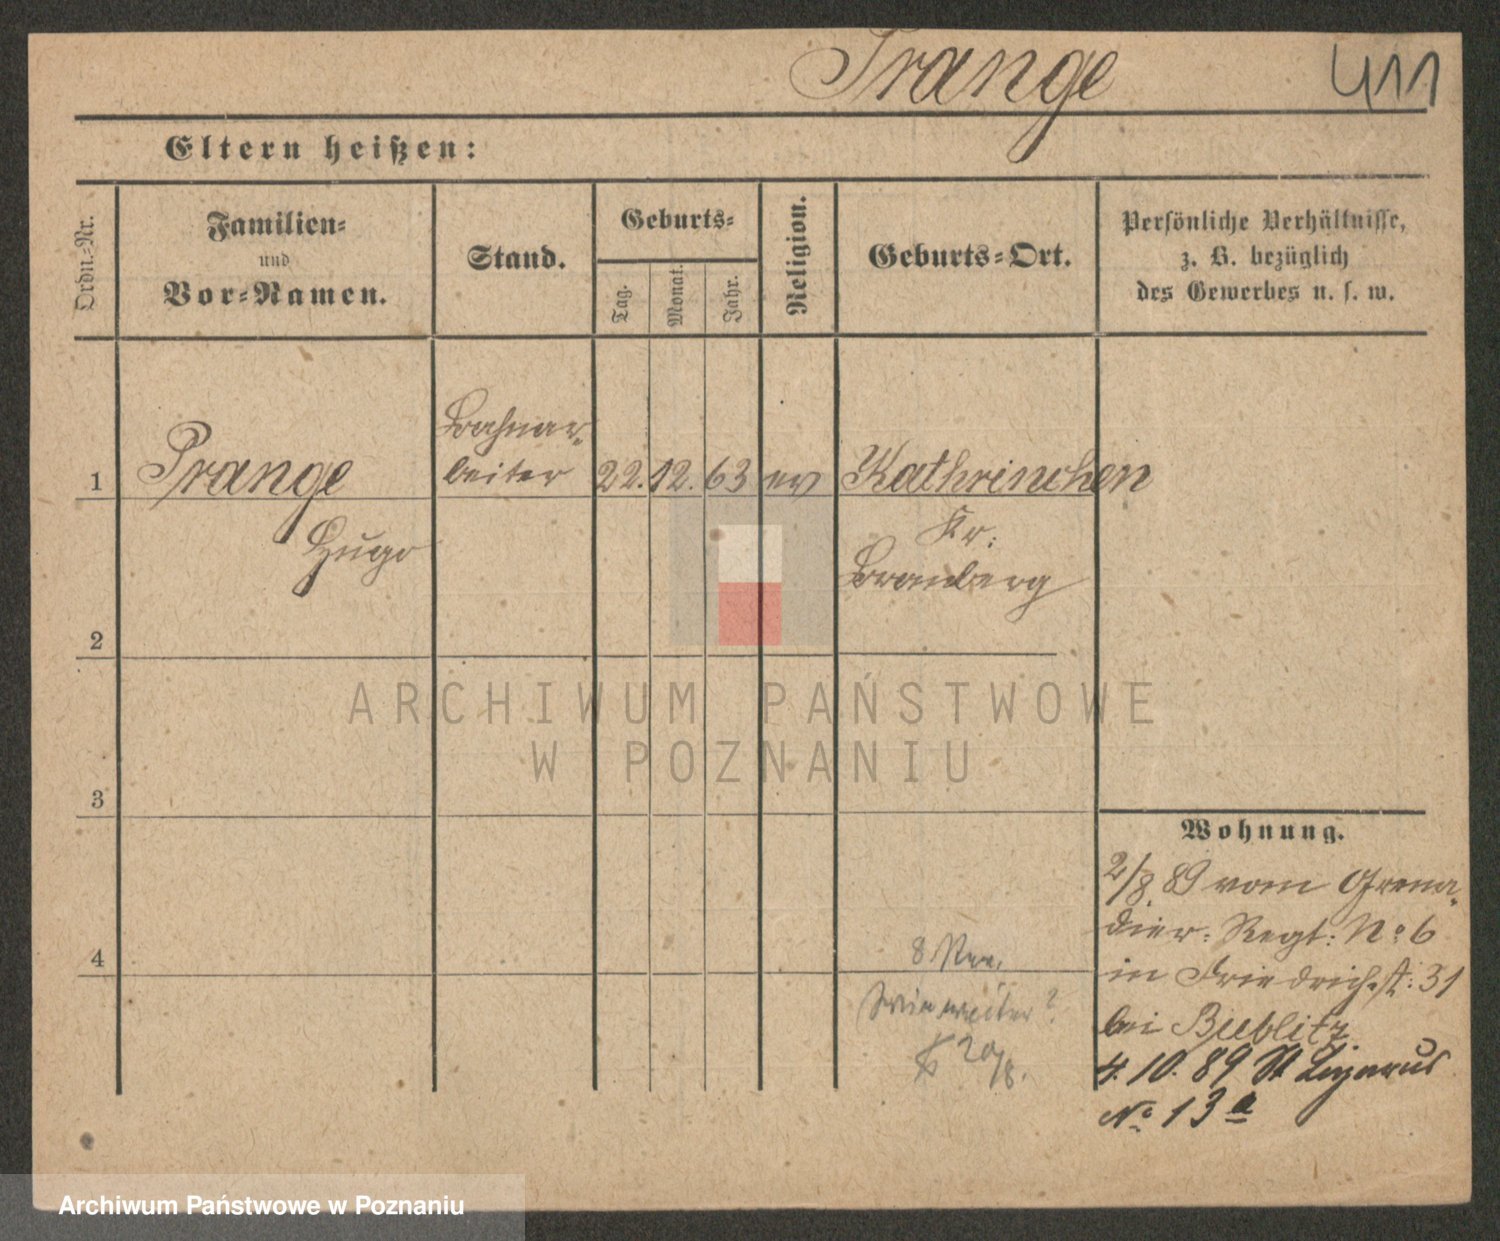 Prange
411
Eltern heißen:
Ordn.-Nr.
Familien-
und
Vor-Namen.
Stand.
Geburts-
Tag.
Monat.
Jahr.
Religion.
Geburts-Ort.
Persönliche Verhältnisse,
z. B. bezüglich
des Gewerbes u. s. w.
1
Prange
Hugo
Bahnar-
beiter
22. 12. 63
ev
Kathrinchen
Kr:
Bromberg
2
3
4
Wohnung.
2/8. 89 vom Grena-
dier-Regt: No 6
in Friedrichst: 31
bei Bieblitz
4. 10. 89 St Lazarus
No 13 a
8
?
20/8.
ARCHIWUM PAŃSTWOWE
W POZNANIU
Archiwum Państwowe w Poznaniu